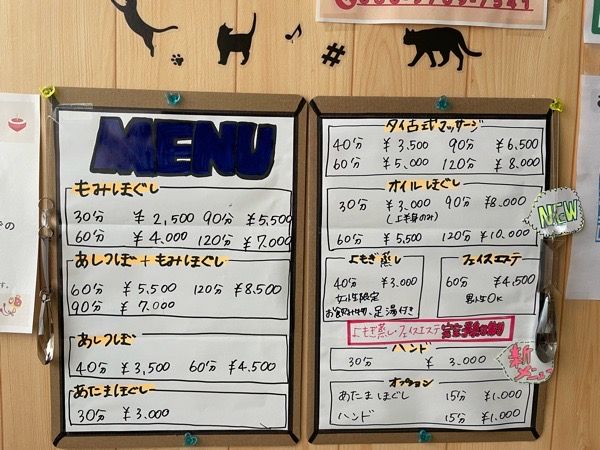 MENU
もみほぐし
30分 ¥2,500 90分 ¥5,500
60分 ¥4.000 120分 ¥7.000
あしつぼ+もみほぐし
60分 ¥5.500 120分 ¥8,500
90分 ¥7.000
あしつぼ
40分 ¥3,500 60分 ¥4.500
あたまほぐし
30分 ¥3.000
タイ古式マッサージ
40分 ¥3.500 90分 ¥6,500
60分 ¥5,000 120分 ¥8,000
オイルほぐし
30分 ¥3,000 90分 ¥8,000
(上半身のみ)
60分 ¥5,500 120分 ¥10,000
NEW
よもぎ蒸し
40分 ¥3,000
女性限定
足湯付き
フェイスエステ
60分 ¥4,500
男性OK
よもぎ蒸し・フェイスエステ
ハンド
30分 ¥3,000
新メニュー
オプション
あたまほぐし 15分 ¥1,000
ハンド 15分 ¥1,000